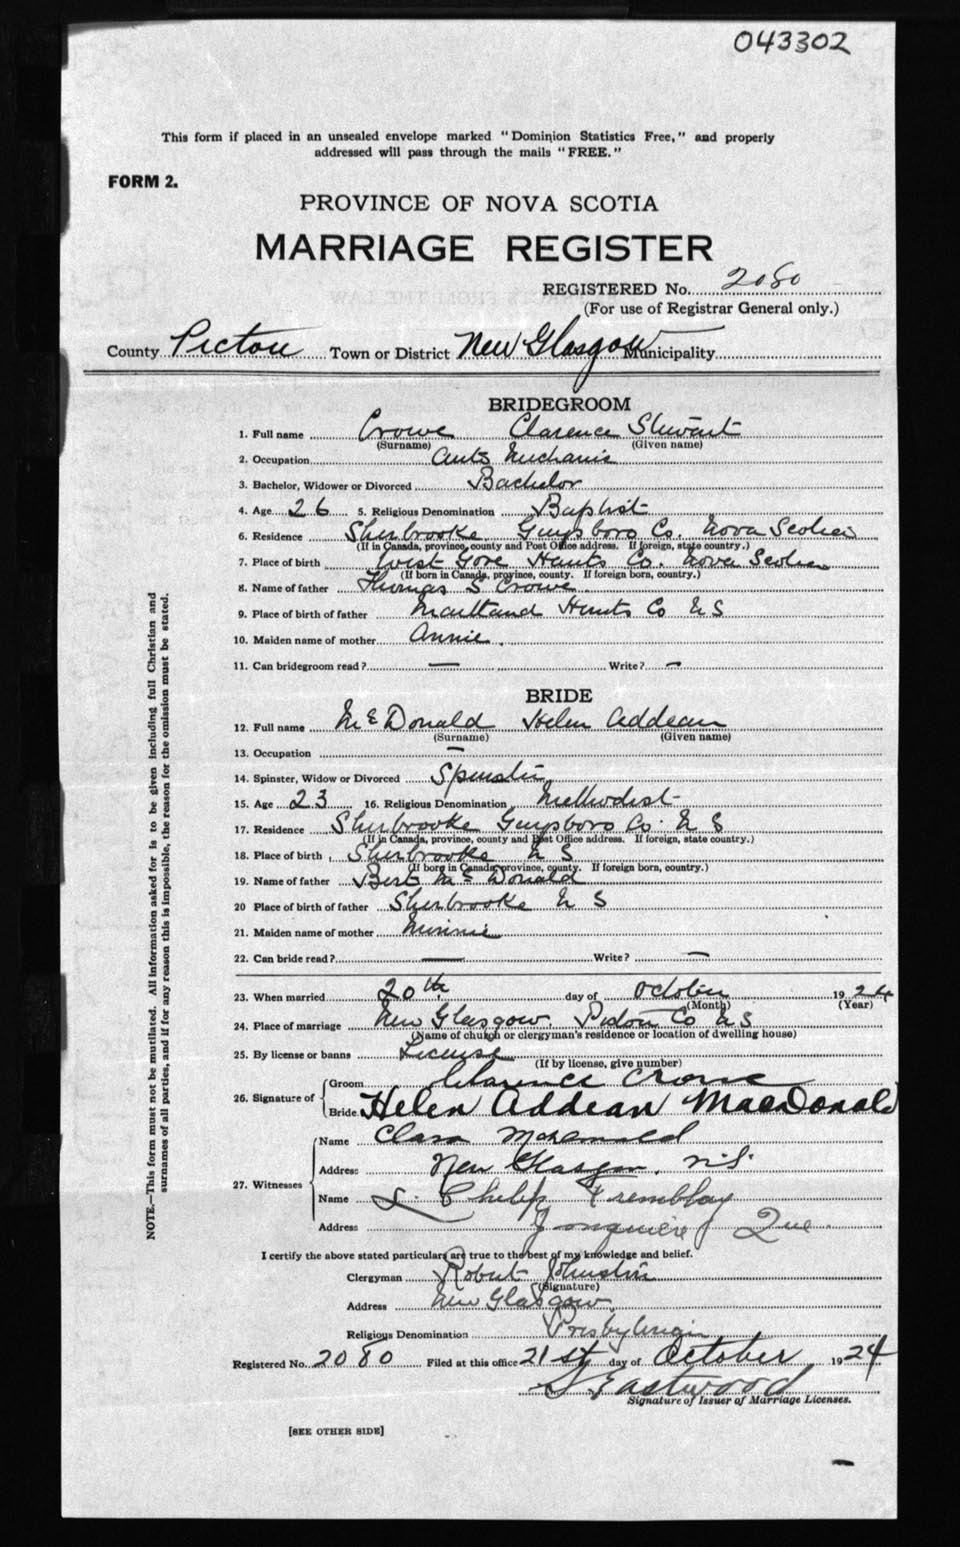 043302
This form if placed in an unsealed envelope marked "Dominion Statistics Free," and properly
addressed will pass through the mails "FREE."
FORM 2.
PROVINCE OF NOVA SCOTIA
MARRIAGE REGISTER
REGISTERED No. 2080
(For use of Registrar General only.)
County Pictou Town or District New Glasgow Municipality
BRIDEGROOM
1. Full name Crowe Clarence Stewart
(Surname) (Given name)
2. Occupation Auto Mechanic
3. Bachelor, Widower or Divorced Bachelor
4. Age 26 5. Religious Denomination Baptist
6. Residence Sherbrooke Guysboro Co. Nova Scotia
(If in Canada, province, county and Post Office address. If foreign, state country.)
7. Place of birth West Gore Hants Co. Nova Scotia
(If born in Canada, province, county. If foreign born, country.)
8. Name of father Thomas S Crowe
9. Place of birth of father Maitland Hants Co N S
10. Maiden name of mother Annie .
11. Can bridegroom read? — Write? —
BRIDE
12. Full name McDonald Helen Addean
(Surname) (Given name)
13. Occupation —
14. Spinster, Widow or Divorced Spinster
15. Age 23 16. Religious Denomination Methodist
17. Residence Sherbrooke Guysboro Co. N S
(If in Canada, province, county and Post Office address. If foreign, state country.)
18. Place of birth Sherbrooke N S
(If born in Canada, province, county. If foreign born, country.)
19. Name of father Bert McDonald
20 Place of birth of father Sherbrooke N S
21. Maiden name of mother Minnie
22. Can bride read? — Write? —
23. When married 20th day of October 1924
(Month) (Year)
24. Place of marriage New Glasgow, Pictou Co N S
(Name of church or clergyman's residence or location of dwelling house)
25. By license or banns License
(If by license, give number)
26. Signature of Groom Clarence Crowe
Bride Helen Addean MacDonald
27. Witnesses
Name Clara McDonald
Address New Glasgow, N.S.
Name L. Philip Tremblay
Address Jonquiere Que.
I certify the above stated particulars are true to the best of my knowledge and belief.
Clergyman Robert Johnston
(Signature)
Address New Glasgow
Religious Denomination Presbyterian
Registered No. 2080 Filed at this office 21st day of October 1924
S Eastwood
Signature of Issuer of Marriage Licenses.
[SEE OTHER SIDE]
NOTE.—This form must not be mutilated. All information asked for is to be given including full Christian and
surnames of all parties, and if for any reason this is impossible, the reason for the omission must be stated.